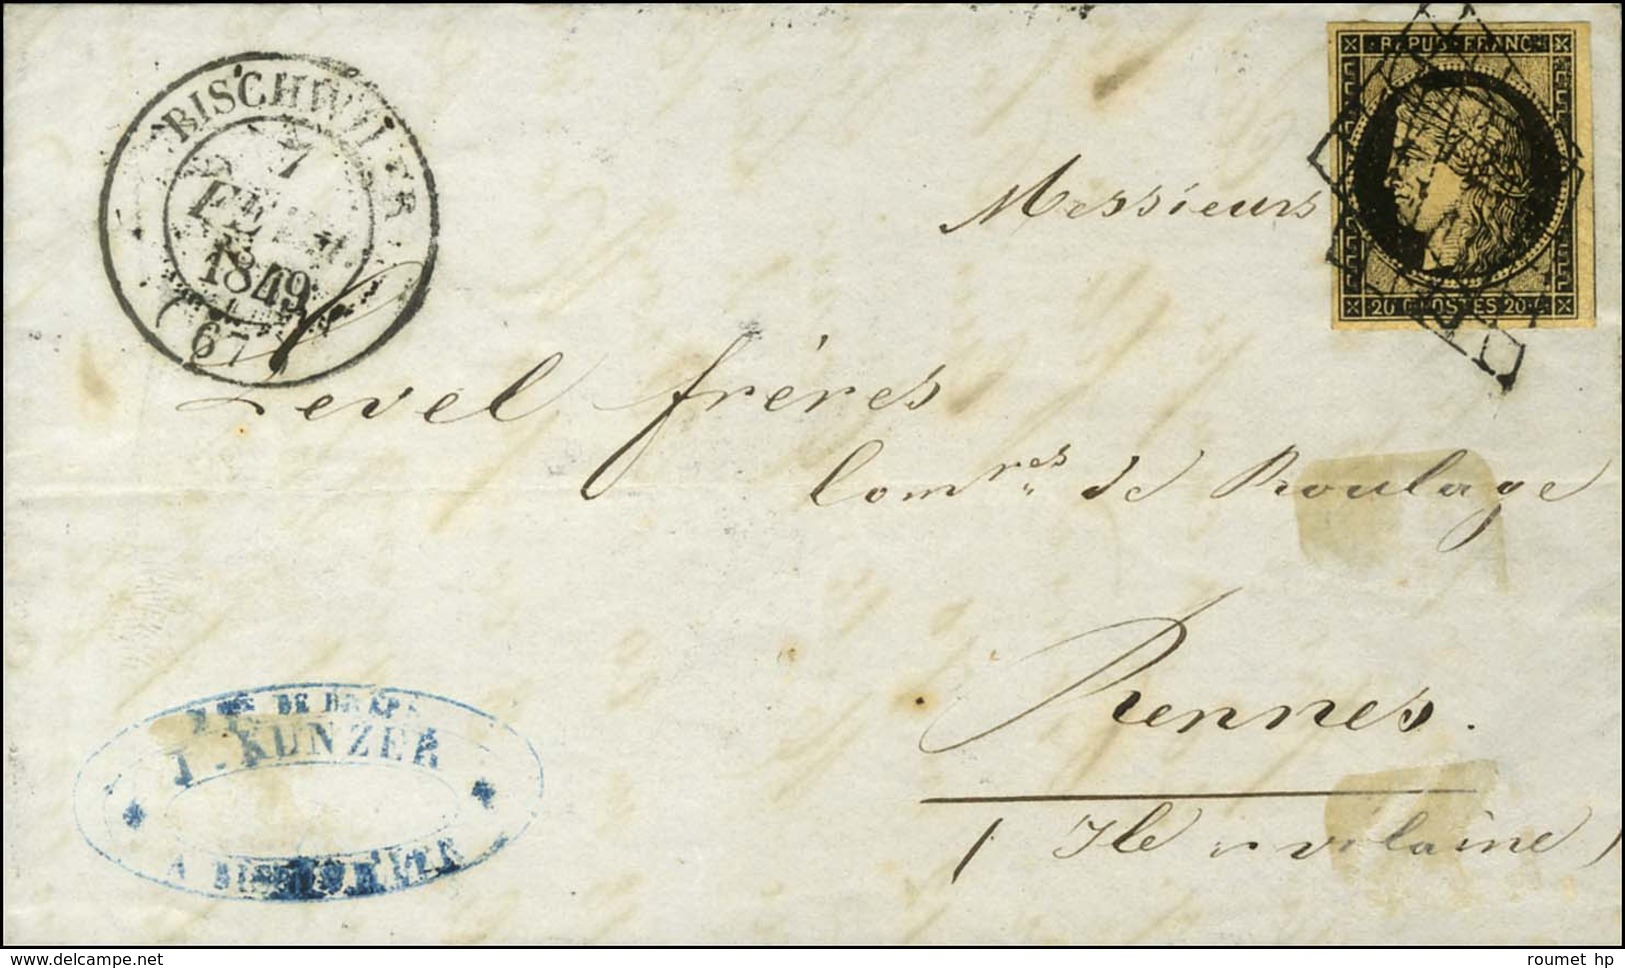 BISCHWILLER
7
FEVR.
1849
(67)
REPUB. FRANC.
20 C POSTES 20 C
Messieurs
Level frères
Comres de Roulage
Rennes.
(Ile et vilaine)
DE DRAPS
KUNZER
A
delcampe.net
roumet hp